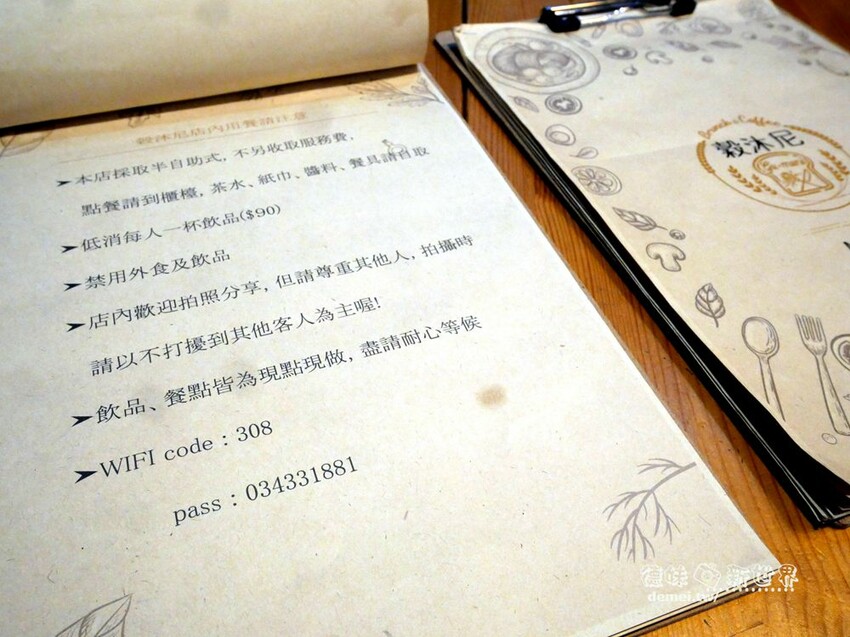 穀沐尼店內用餐請注意
➤本店採取半自助式, 不另收取服務費,
點餐請到櫃檯, 茶水、紙巾、醬料、餐具請自取
➤低消每人一杯飲品($90)
➤禁用外食及飲品
➤店內歡迎拍照分享, 但請尊重其他人, 拍攝時
請以不打擾到其他客人為主喔!
➤飲品、餐點皆為現點現做, 盡請耐心等候
➤WIFI code : 308
pass : 034331881
Brunch & Coffee
穀沐尼
食味 新世界
demei.tw